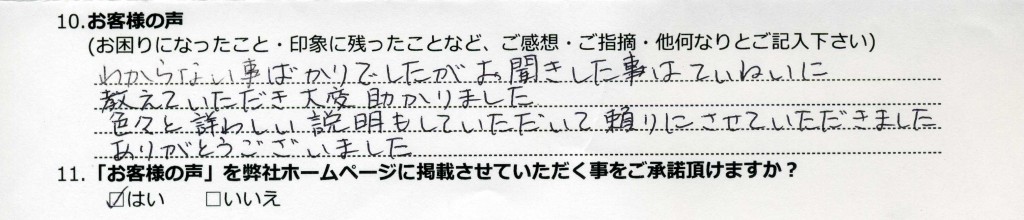 10.お客様の声
(お困りになったこと・印象に残ったことなど、ご感想・ご指摘・他何なりとご記入下さい)
わからない事ばかりでしたがお聞きした事はていねいに
教えていただき大変助かりました
色々と詳わしい説明もしていただいて頼りにさせていただきました
ありがとうございました
11.「お客様の声」を弊社ホームページに掲載させていただく事をご承諾頂けますか？
☑はい　□いいえ